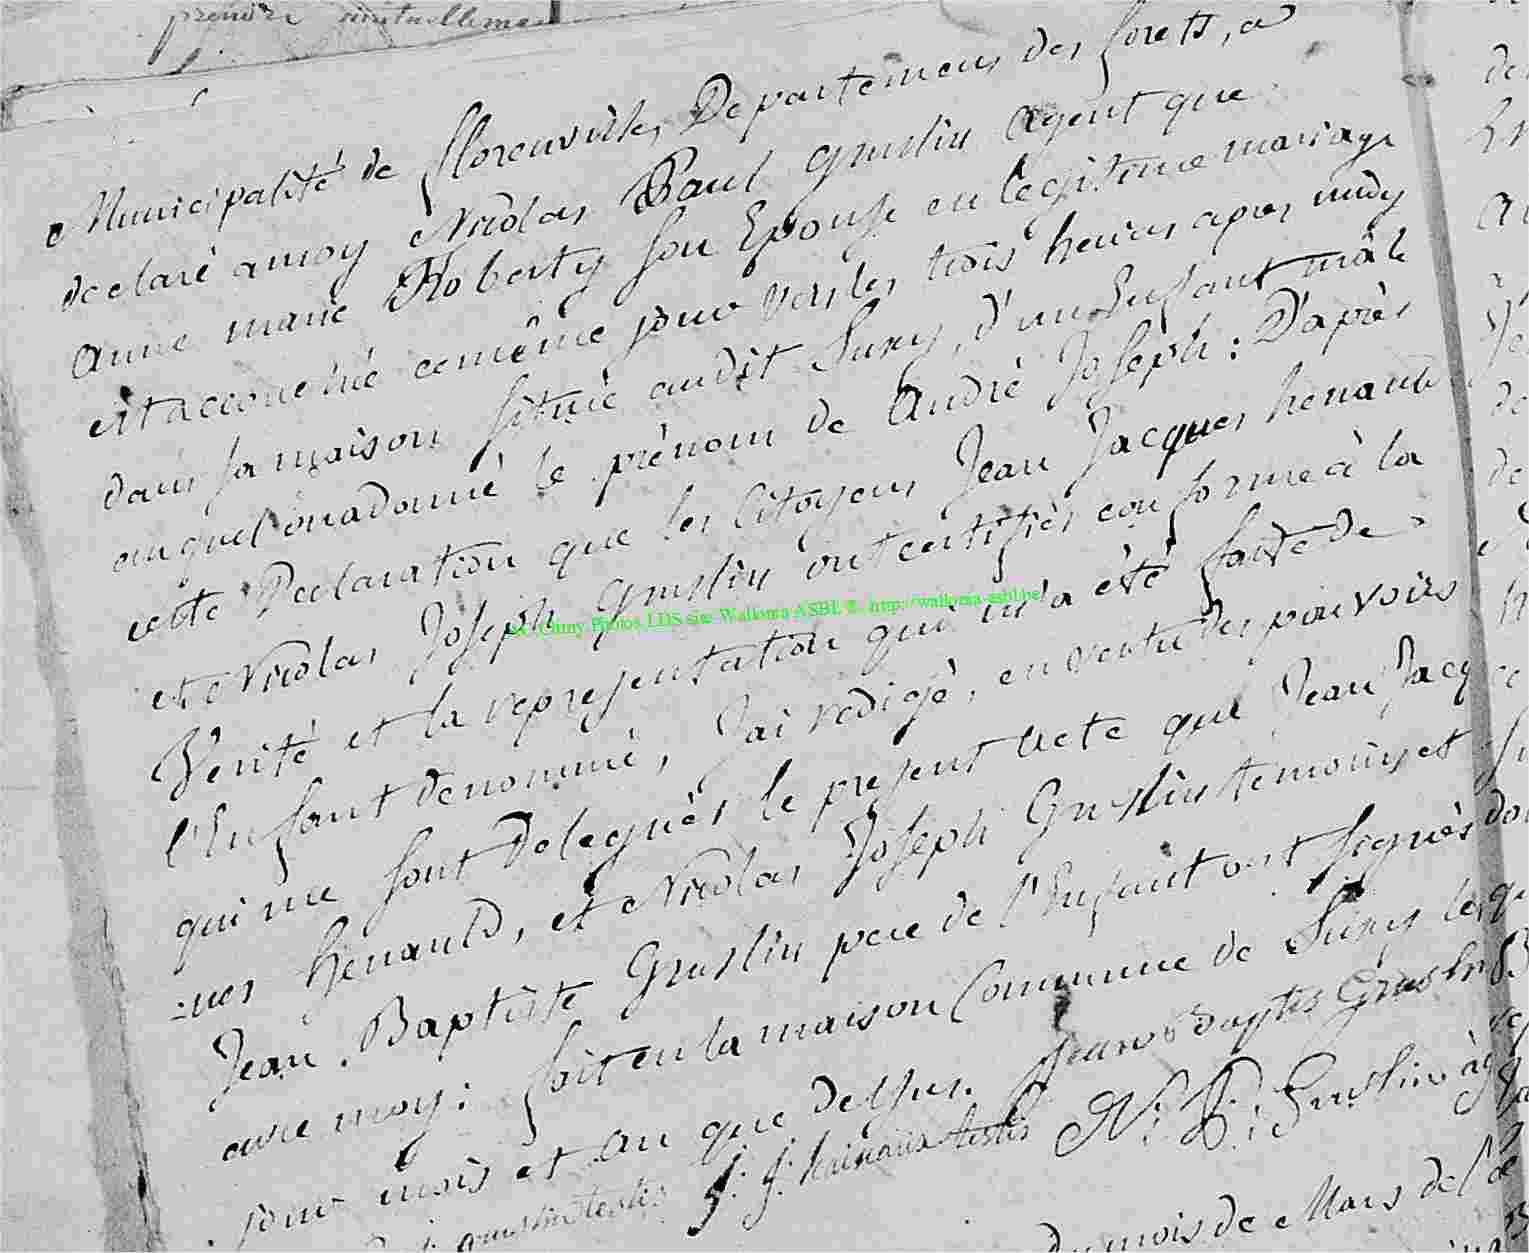 prendre mutuellement
Municipalité de florenville, Departement des forets, a
declaré a moy Nicolas Paul Gruslin Agent que
anne marie Roberty son Epouse en legitime mariage
est accouchée ce même jour vers les trois heures apres midy
dans sa maison située audit Suxy, d'un Enfant mâle
auquel on a donné le prénom de André Joseph : D'après
cette Declaration que les Citoyens Jean Jacques henauld
et Nicolas Joseph Gruslin ont certifiés conforme à la
Av. Cluny Photos LDS site Wallonia ASBL ©. http://wallonia-asbl.be/
Verité et la representation qui m'a été faite de
l'Enfant denommé, J'ai redigé, en vertu des pouvoirs
qui me sont delegués le present acte que Jean Jacq
=ues henauld, et Nicolas Joseph Gruslin temoins et
Jean Baptiste Gruslin pere de l'Enfant ont signés
avec moy : fait en la maison Commune de Suxy les
jour mois et an que dessus. Jean Baptes Gruslin
gruslin testis J: J: hainaux testis N: P: Gruslin ag
Du mois de Mars de l'